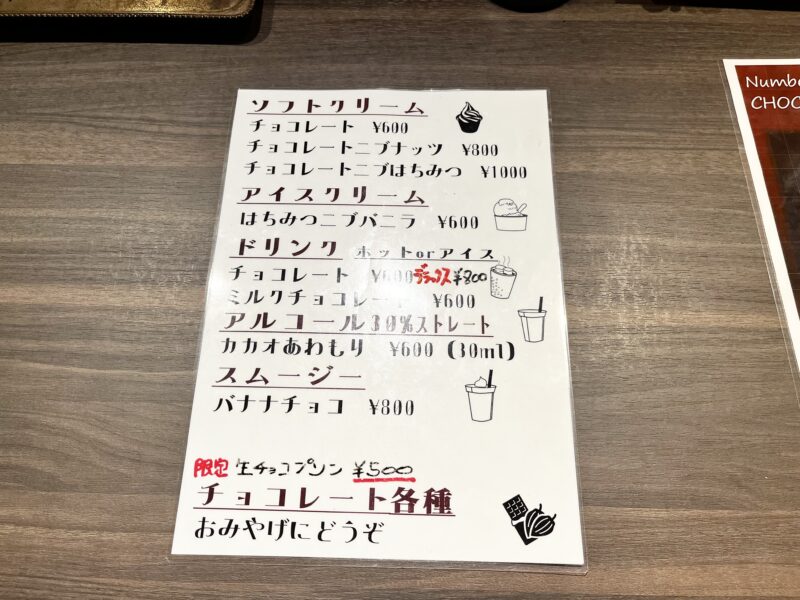 ソフトクリーム
チョコレート ¥600
チョコレートニブナッツ ¥800
チョコレートニブはちみつ ¥1000
アイスクリーム
はちみつニブバニラ ¥600
ドリンク ホットorアイス
チョコレート ¥600 デラックス ¥800
ミルクチョコレート ¥600
アルコール30%ストレート
カカオあわもり ¥600 (30ml)
スムージー
バナナチョコ ¥800
限定 生チョコプリン ¥500
チョコレート各種
おみやげにどうぞ
Numbe
CHOC